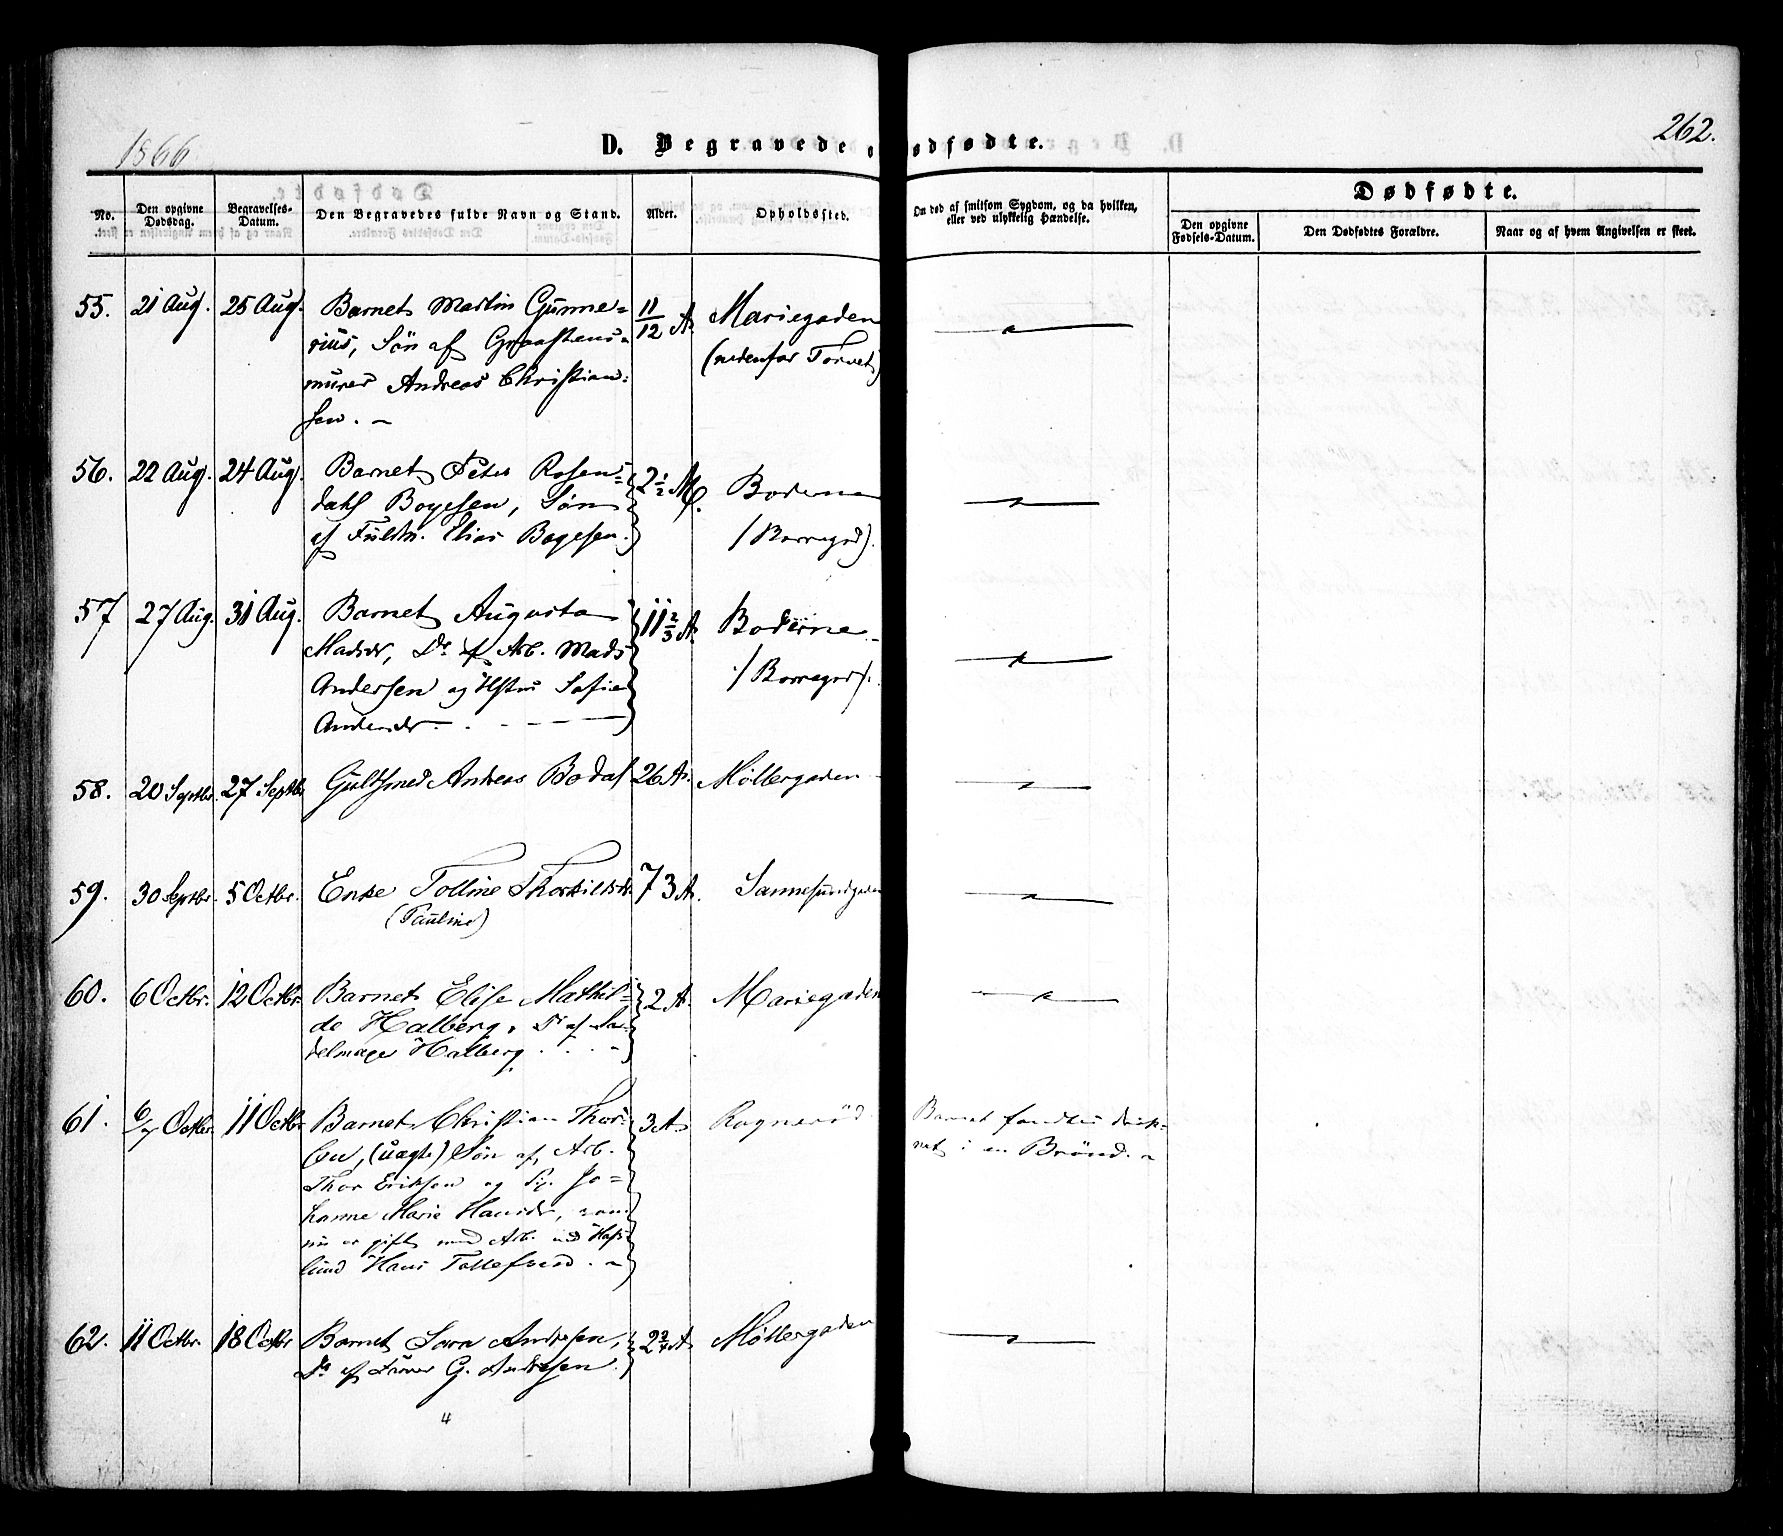 1866
D. Begravede o
ødfødte.
262.
No.
Den opgivne Dødsdag.
Begravelses-Datum.
Den Begravedes fulde Navn og Stand.
Alder.
Opholdssted.
Om død af smitsom Sygdom, og da hvilken,
eller ved ulykkelig Hændelse.
Dødfødte.
Den opgivne Fødsels-Datum.
Den Dødfødtes Forældre.
Naar og af hvem Angivelsen er skeet.
55. 21 Aug. 25 Aug. Barnet Martin Gunne= 11/12 A. Mariegaden
rius, Søn af Graastens= (nedenfor Torvet)
murer Andreas Christian=
sen. -
56. 22 Aug. 24 Aug. Barnet Peter Rosen= 2 1/2 M. Boderne
dahl Boyesen, Søn /Borregd).
af Fuldm. Elias Boyesen.
57 27 Aug. 31 Aug. Barnet Augusta 11 2/3 A. Boderne
Madsdr, Dr. af Arb. Mads /Borregd/.
Andersen og Hstru Sofie
Andersdr - . - - -
58. 20 Septbr. 27 Septbr Guldsmed Andreas Bodal 26 A. Møllergaden
59. 30 Septbr. 5 Octbr. Enke Tolline Thorkildsdr. 73 A. Sannesundgaden
(Pauline)
60. 6 Octbr. 12 Octbr. Barnet Elise Mathil= 2 A. Mariegaden
de Halberg, Dr af Sa=
delmager Halberg . . . -
61. 6/7 Octbr. 11 Octbr. Barnet Christian Thor= 3 A. Rognerød Barnet fandtes druk=
sen, (uægte) Søn af Arb. net i en Brønd. -
Thor Eriksen og Pig. Jo=
hanne Marie Hansdr, som
nu er gift med Arb. ved Hafs=
lund Hans Tollefsen . -
62. 11 Octbr. 18 Octbr Barnet Sara Andresen, 2 3/4 A Møllergaden
Dr af G. Andresen.
4